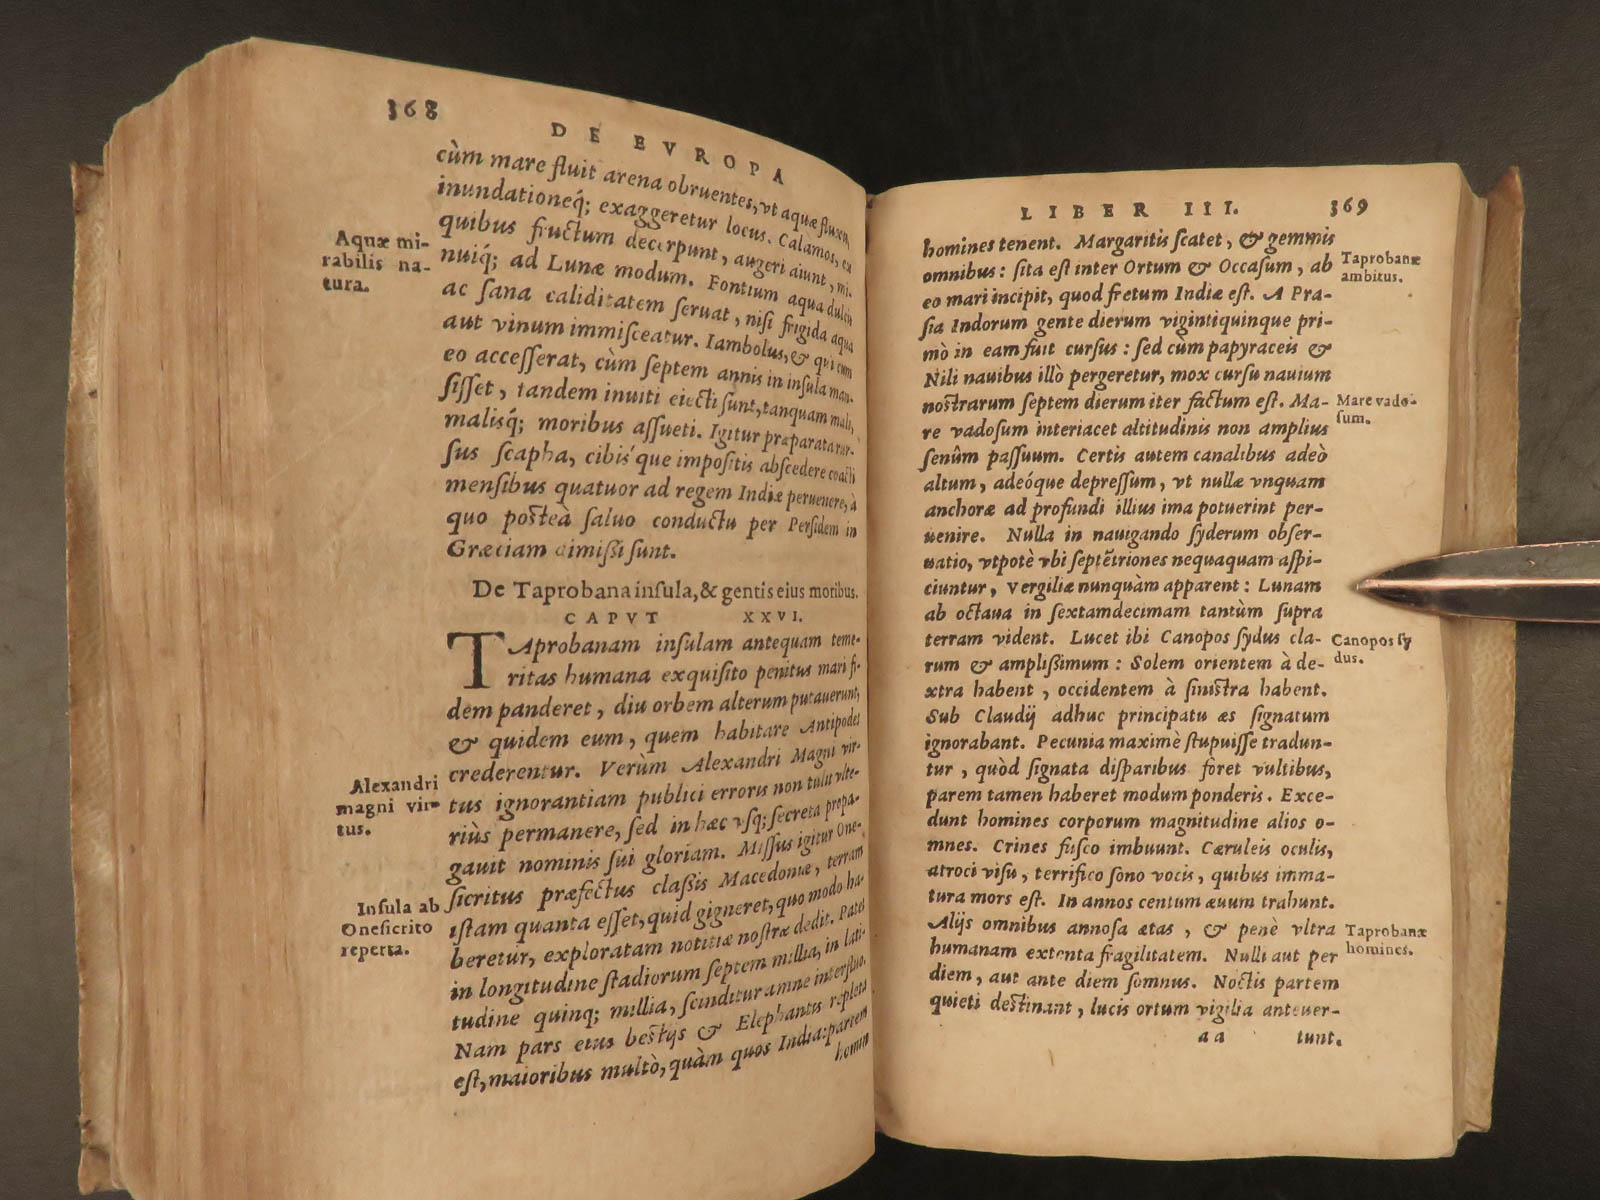 368
DE EVROPA
cùm mare fluit arena obruentes, vt aquæ fluxu,
inundationeq́; exaggeretur locus. Calamos, ex
quibus fructum decerpunt, augeri aiunt, mi-
nuiq́; ad Lunæ modum. Fontium aqua dulcis
Aquæ mi-
rabilis na-
tura.
ac sana caliditatem seruat, nisi frigida aqua
aut vinum immisceatur. Iambolus, & qui cum
eo accesserat, cùm septem annis in insula man-
sisset, tandem inuiti eiecti sunt, tanquam mali,
malisq́; moribus assueti. Igitur præparata rur-
sus scapha, cibis que impositis abscedere coacti
mensibus quatuor ad regem Indiæ peruenere, à
quo posteà saluo conductu per Persidem in
Græciam dimissi sunt.
De Taprobana insula, & gentis eius moribus.
CAPVT XXVI.
TAprobanam insulam antequam teme-
ritas humana exquisito penitus mari fi-
dem panderet, diu orbem alterum putauerunt,
& quidem eum, quem habitare Antipodes
crederentur. Verùm Alexandri Magni vir-
Alexandri
magni vir-
tus.
tus ignorantiam publici erroris non tulit vlte-
riùs permanere, sed in hæc vsq; secreta propa-
gauit nominis sui gloriam. Missus igitur One-
sicritus præfectus classis Macedoniæ, terram
Insula ab
Onesicrito
reperta.
istam quanta esset, quid gigneret, quo modo ha-
beretur, exploratam notitiæ nostræ dedit. Patet
in longitudine stadiorum septem millia, in lati-
tudine quinq; millia, scinditur amne interfluo.
Nam pars eius bestijs & Elephantis repleta
est, maioribus multò, quàm quos India: partem
homin
LIBER III. 369
homines tenent. Margaritis scatet, & gemmis
omnibus: sita est inter Ortum & Occasum, ab
Taprobanæ
ambitus.
eo mari incipit, quod fretum Indiæ est. A Pra-
sia Indorum gente dierum vigintiquinque pri-
mò in eam fuit cursus: sed cùm papyraceis &
Nili nauibus illò pergeretur, mox cursu nauium
nostrarum septem dierum iter factum est. Ma-
Mare vado-
sum.
re vadosum interiacet altitudinis non amplius
senûm passuum. Certis autem canalibus adeò
altum, adeóque depressum, vt nullæ vnquam
anchoræ ad profundi illius ima potuerint per-
uenire. Nulla in nauigando syderum obser-
uatio, vtpotè vbi septētriones nequaquam aspi-
ciuntur, Vergiliæ nunquàm apparent: Lunam
ab octaua in sextamdecimam tantùm supra
terram vident. Lucet ibi Canopos sydus cla-
Canopos sy
dus.
rum & amplissimum: Solem orientem à de-
xtra habent, occidentem à sinistra habent.
Sub Claudij adhuc principatu æs signatum
ignorabant. Pecunia maximè stupuisse tradun-
tur, quòd signata disparibus foret vultibus,
parem tamen haberet modum ponderis. Exce-
dunt homines corporum magnitudine alios o-
mnes. Crines fusco imbuunt. Cæruleis oculis,
atroci visu, terrifico sono vocis, quibus imma-
tura mors est. In annos centum æuum trahunt.
Alijs omnibus annosa ætas, & penè vltra
Taprobanæ
homines.
humanam extenta fragilitatem. Nulli aut per
diem, aut ante diem somnus. Noctis partem
quieti destinant, lucis ortum vigilia anteuer-
aa tunt.